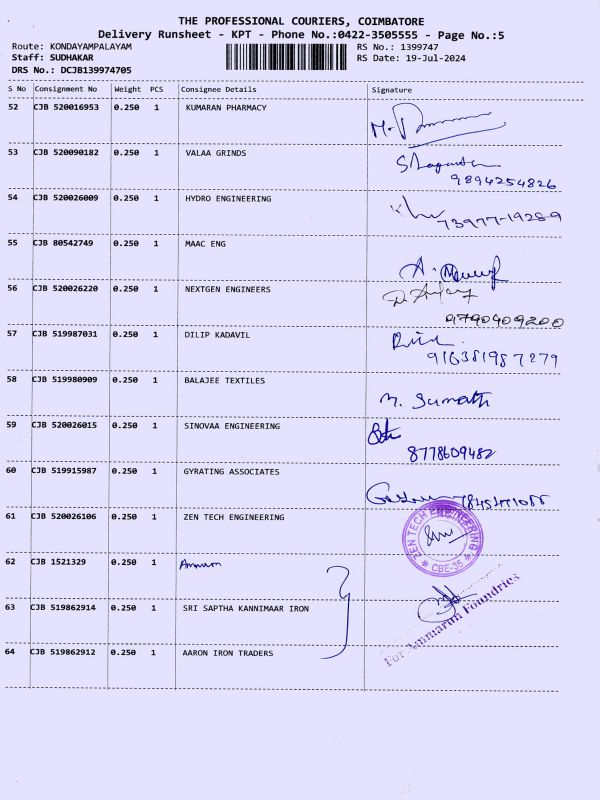 THE PROFESSIONAL COURIERS, COIMBATORE
Delivery Runsheet - KPT - Phone No.:0422-3505555 - Page No.:5
Route: KONDAYAMPALAYAM
RS No.: 1399747
Staff: SUDHAKAR
RS Date: 19-Jul-2024
DRS No.: DCJB139974705
S No Consignment No Weight PCS Consignee Details Signature
52 CJB 520016953 0.250 1 KUMARAN PHARMACY
53 CJB 520090182 0.250 1 VALAA GRINDS
9894254826
54 CJB 520026009 0.250 1 HYDRO ENGINEERING
73977-19289
55 CJB 80542749 0.250 1 MAAC ENG
56 CJB 520026220 0.250 1 NEXTGEN ENGINEERS
9790409200
57 CJB 519987031 0.250 1 DILIP KADAVIL
916381987279
58 CJB 519980909 0.250 1 BALAJEE TEXTILES
M. Sumathi
59 CJB 520026015 0.250 1 SINOVAA ENGINEERING
8778609482
60 CJB 519915987 0.250 1 GYRATING ASSOCIATES
61 CJB 520026106 0.250 1 ZEN TECH ENGINEERING
ZEN TECH ENGINEERING
* CBE-35 *
62 CJB 1521329 0.250 1
63 CJB 519862914 0.250 1 SRI SAPTHA KANNIMAAR IRON
For Janmarun Foundries
64 CJB 519862912 0.250 1 AARON IRON TRADERS